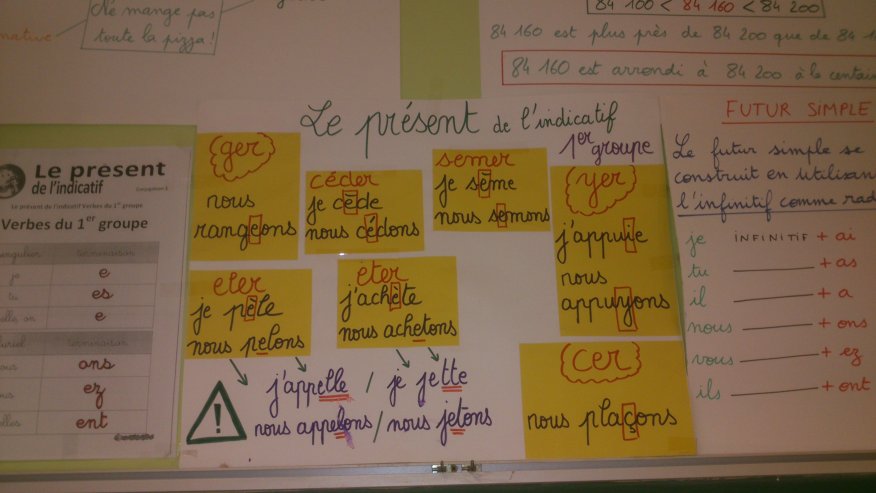 Ne mange pas
toute la pizza !
84 100 < 84 160 < 84 200
84 160 est plus près de 84 200 que de 84 1
84 160 est arrondi à 84 200 à la centai
Le présent
de l'indicatif
Le présent de l'indicatif Verbes du 1er groupe
Verbes du 1er groupe
e
tu es
e
ons
ez
ent
Le présent de l'indicatif
1er groupe
ger
nous
rangeons
céder
je cède
nous cédons
semer
je sème
nous semons
yer
j'appuie
nous
appuyons
eler
je pèle
nous pelons
eter
j'achète
nous achetons
cer
nous plaçons
!
j'appelle / je jette
nous appelons / nous jetons
FUTUR SIMPLE
Le futur simple se
construit en utilisan
l'infinitif comme rad
je INFINITIF + ai
tu + as
il + a
nous + ons
vous + ez
ils + ont